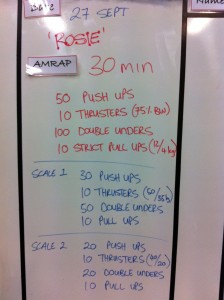 27 SEPT
'ROSIE'
AMRAP 30 min
50 PUSH UPS
10 THRUSTERS (75% BW)
100 DOUBLE UNDERS
10 STRICT PULL UPS
SCALE 1
30 PUSH UPS
10 THRUSTERS (60/35kg)
50 DOUBLE UNDERS
10 PULL UPS
SCALE 2
20 PUSH UPS
10 THRUSTERS
20 DOUBLE UNDERS
10 PULL UPS